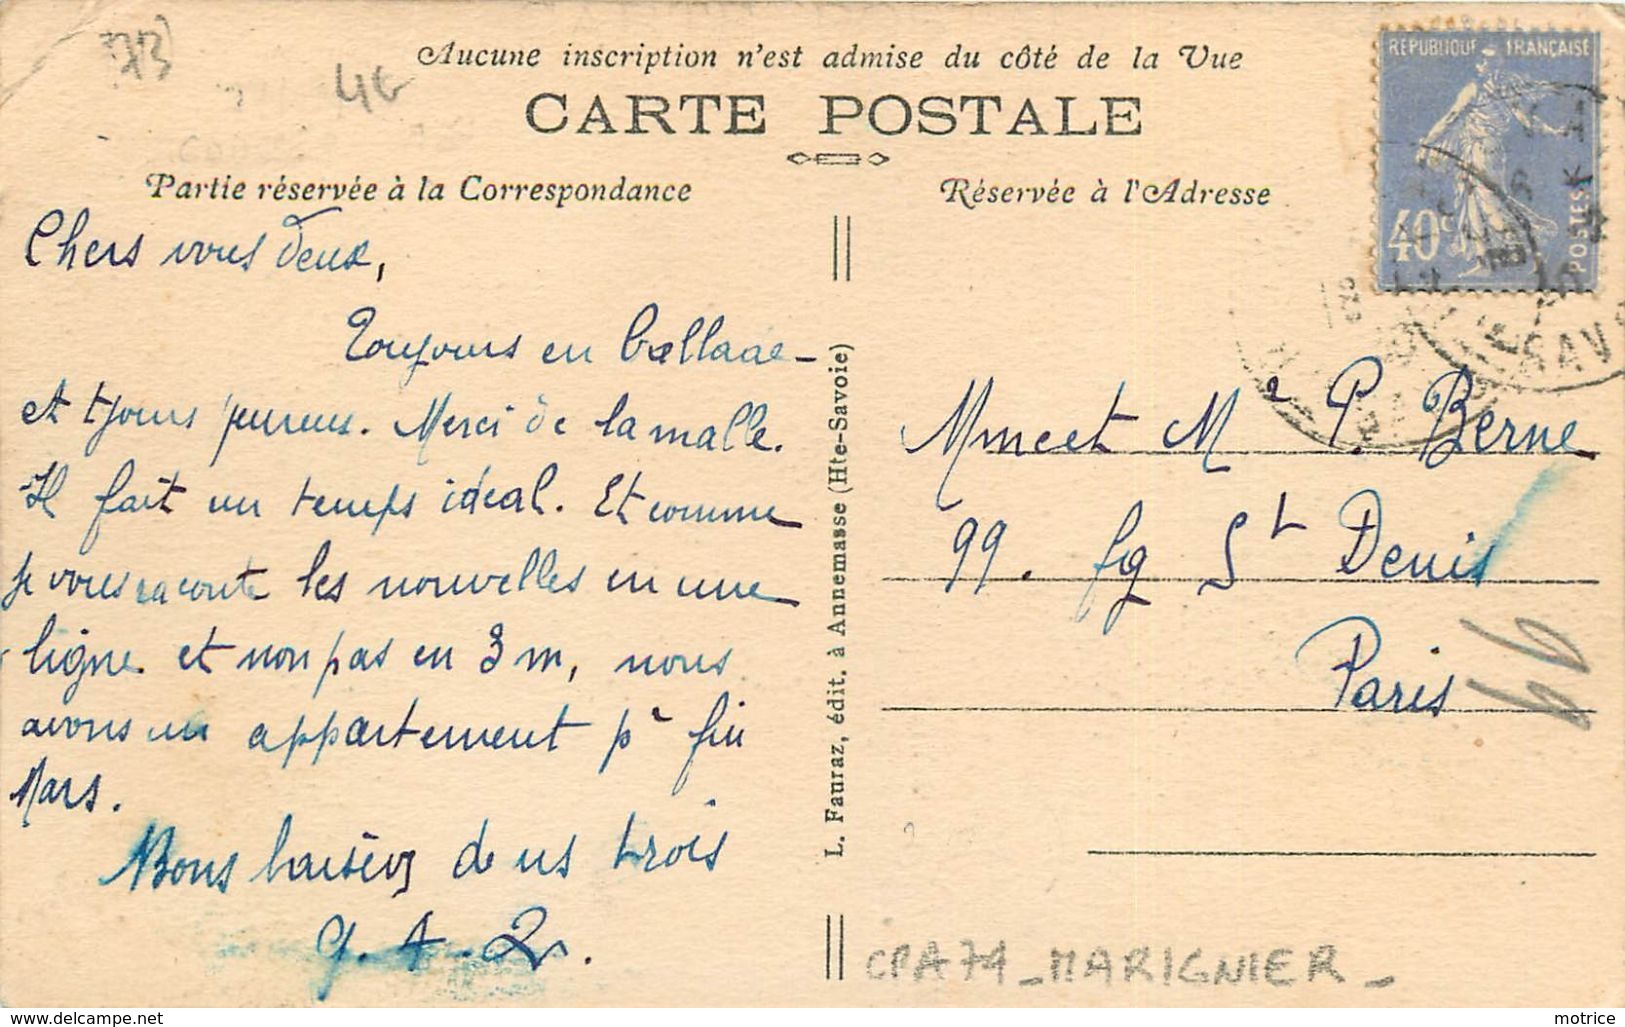 Aucune inscription n'est admise du côté de la Vue
CARTE POSTALE
Partie réservée à la Correspondance
Réservée à l'Adresse
RÉPUBLIQUE FRANÇAISE
40c
POSTES
Chers vous deux,
Toujours en
et tjours heureux. Merci de la malle.
Il fait un temps idéal. Et comme
je vous raconte les nouvelles en une
ligne et non pas en 3 m, nous
avons un appartement pr fin
Mars.
Bons baisers de us trois
L. Fauraz, édit. à Annemasse (Hte-Savoie)
Mme et Mr P. Berne
99. fg St Denis
Paris
CPA 74 - MARIGNIER -
delcampe.net
motrice